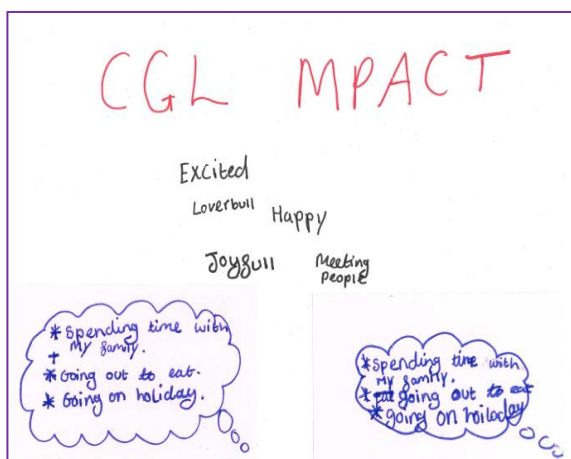 CGL MPACT
Excited
Loverbull
Happy
Joyfull
Meeting
People
* Spending time with
my family.
* Going out to eat.
* Going on holiday.
* Spending time with
my family.
* going out to eat
* going on hoiladay